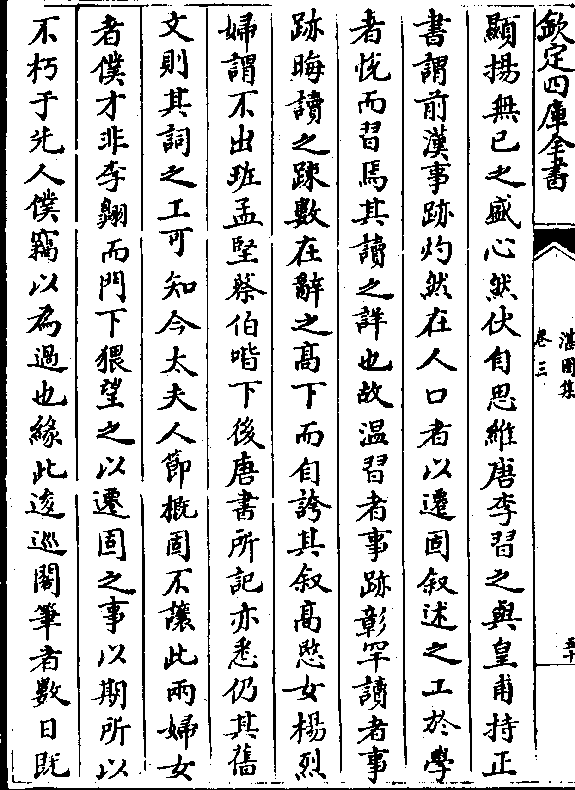 欽定四庫全書
湛園集
卷三
五十
顯揚無已之盛心然伏自思維唐李習之與皇甫持正
書謂前漢事跡灼然在人口者以遷固叙述之工於學
者悅而習焉其讀之詳也故温習者事跡彰罕讀者事
跡晦讀之踈數在辭之高下而自誇其叙高愍女楊烈
婦謂不出班孟堅蔡伯喈下後唐書所記亦悉仍其舊
文則其詞之工可知今太夫人節概固不讓此兩婦女
者僕才非李翺而門下猥望之以遷固之事以期所以
不朽于先人僕竊以為過也緣此逡巡閣筆者數日既